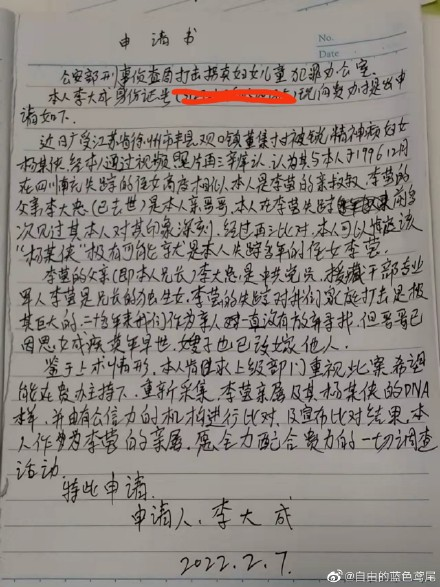 申请书
No.
Date
公安部刑事侦查局打击拐卖妇女儿童犯罪办公室
本人李大成身份证号 现向贵办提出申
请如下.
近日广受江苏省徐州市丰县欢口镇董集村被锁精神病妇女
杨某侠.经本人通过视频照片再三辨认.认为其与本人于1996.12月
在四川南充失踪的侄女高度相似.本人是李莹的亲叔叔.李莹的
父亲李大忠(已去世)是本人亲哥哥.本人在李莹失踪前多
次见过其本人对其印象深刻.经过再三比对.本人可以确定该
"杨某侠"极有可能就是本人失踪多年的侄女李莹.
李莹的父亲(即本人兄长)李大忠是中共党员.援藏干部专业
军人李莹是兄长的独生女.李莹的失踪对我们家族打击是极
其巨大的.二十多年来我们作为亲人一直没有放弃寻找.但哥哥已
因思女成疾英年早世.嫂子也已改嫁他人.
鉴于上术情形.本人特请求上级部门重视此案希望
能在贵办主持下.重新采集.李莹亲属及其杨某侠的DNA
样.并由有公信力的机构进行比对.及宣布比对结果.本
人作为李莹的亲属.愿全力配合贵办的一切调查
活动.
特此申请.
申请人.李大成
2022.2.7.
@自由的蓝色鸢尾